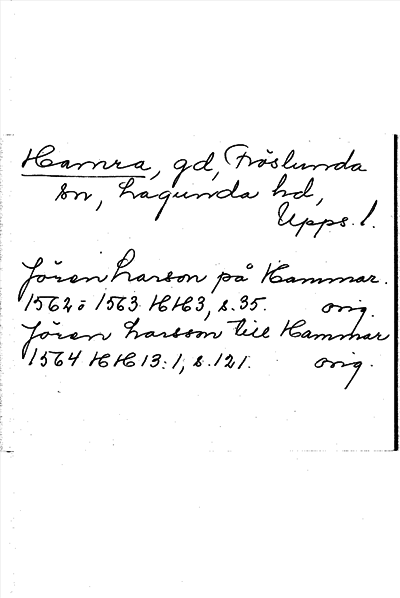 Hamra, gd, Fröslunda
sn, Lagunda hd,
Upps. l.
Jören Larson på Hammar.
1562-1563 HH3, s. 35. orig.
Jören Larsson till Hammar
1564 HH 13:1, s. 121. orig.